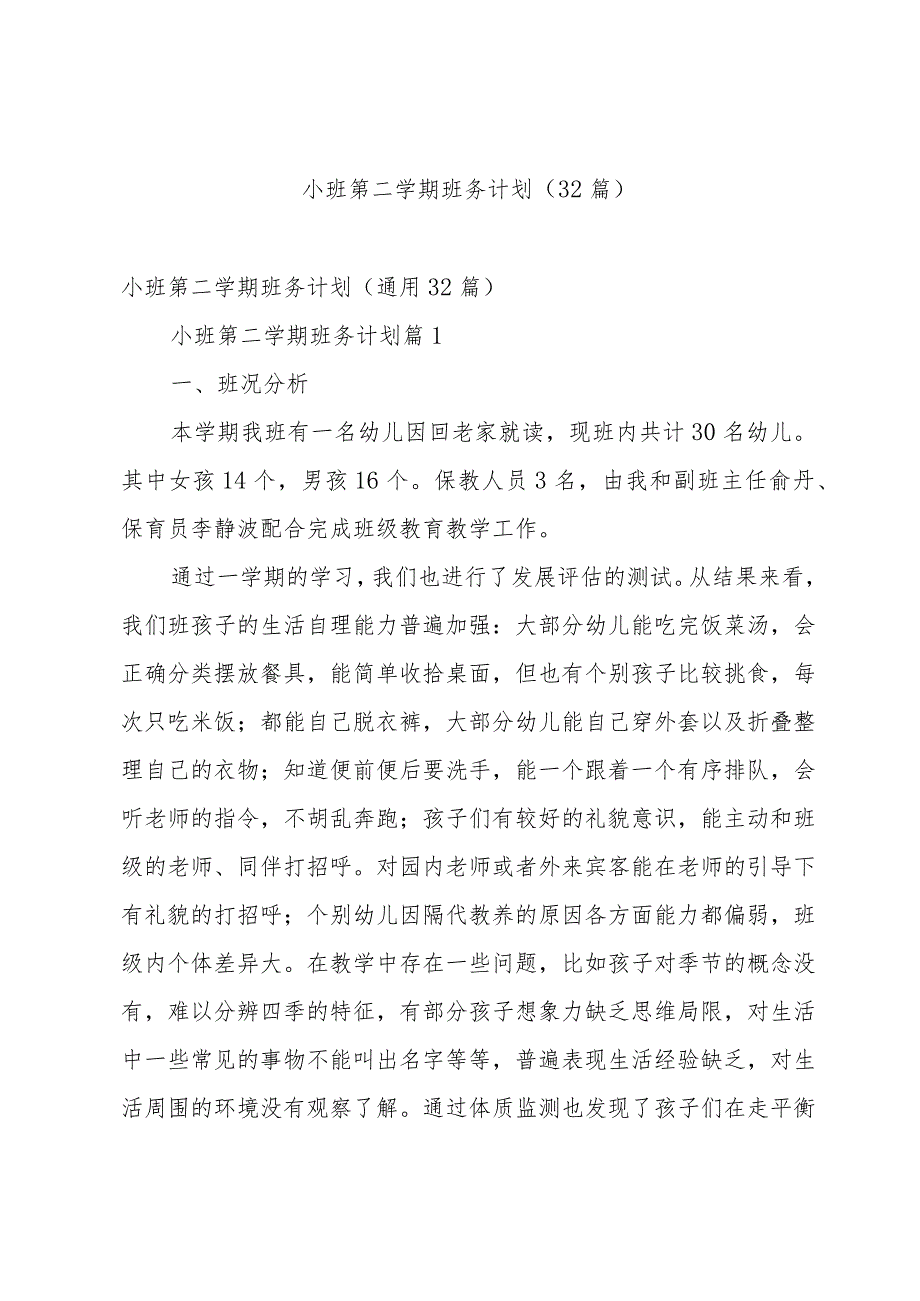 小班第二学期班务计划（32 篇）
小班第二学期班务计划（通用 32 篇）
小班第二学期班务计划篇 1
一、班况分析
本学期我班有一名幼儿因回老家就读，现班内共计 30 名幼儿。
其中女孩 14 个，男孩 16 个。保教人员 3 名，由我和副班主任俞丹、
保育员李静波配合完成班级教育教学工作。
通过一学期的学习，我们也进行了发展评估的测试。从结果来看，
我们班孩子的生活自理能力普遍加强：大部分幼儿能吃完饭菜汤，会
正确分类摆放餐具，能简单收拾桌面，但也有个别孩子比较挑食，每
次只吃米饭；都能自己脱衣裤，大部分幼儿能自己穿外套以及折叠整
理自己的衣物；知道便前便后要洗手，能一个跟着一个有序排队，会
听老师的指令，不胡乱奔跑；孩子们有较好的礼貌意识，能主动和班
级的老师、同伴打招呼。对园内老师或者外来宾客能在老师的引导下
有礼貌的打招呼；个别幼儿因隔代教养的原因各方面能力都偏弱，班
级内个体差异大。在教学中存在一些问题，比如孩子对季节的概念没
有，难以分辨四季的特征，有部分孩子想象力缺乏思维局限，对生活
中一些常见的事物不能叫出名字等等，普遍表现生活经验缺乏，对生
活周围的环境没有观察了解。通过体质监测也发现了孩子们在走平衡